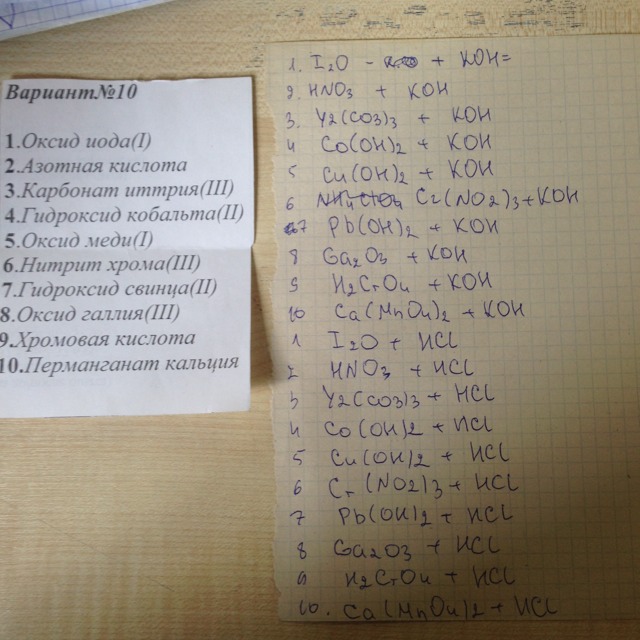 Вариант№10
1.Оксид иода(I)
2.Азотная кислота
3.Карбонат иттрия(III)
4.Гидроксид кобальта(II)
5.Оксид меди(I)
6.Нитрит хрома(III)
7.Гидроксид свинца(II)
8.Оксид галлия(III)
9.Хромовая кислота
10.Перманганат кальция
1. I2O - + KOH=
2. HNO3 + KOH
3. Y2(CO3)3 + KOH
4 Co(OH)2 + KOH
5 Cu(OH)2 + KOH
6 Cr(NO2)3 + KOH
7 Pb(OH)2 + KOH
8 Ga2O3 + KOH
9 H2CrO4 + KOH
10 Ca(MnO4)2 + KOH
1 I2O + HCl
2 HNO3 + HCl
3 Y2(CO3)3 + HCl
4 Co(OH)2 + HCl
5 Cu(OH)2 + HCl
6 Cr(NO2)3 + HCl
7 Pb(OH)2 + HCl
8 Ga2O3 + HCl
9 H2CrO4 + HCl
10. Ca(MnO4)2 + HCl